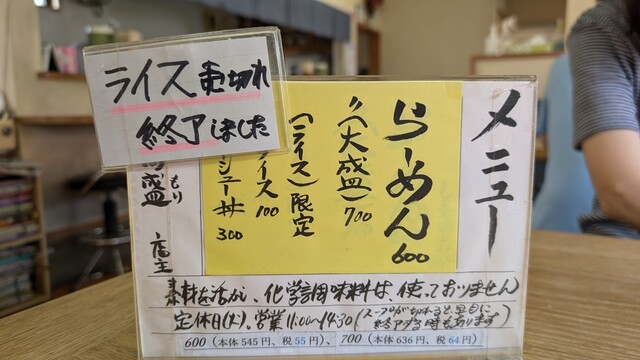 ライス売切れ
終了しました
メニュー
らーめん 600
〃(大盛) 700
(ライス)限定
イス 100
シュー丼 300
盛 もり
店主
素材を活かし、化学調味料は、使っておりません
定休日(火)、営業11:00~14:30(スープが切れると早目に
終了する時もあります)
600(本体545円、税55円)、700(本体636円、税64円)